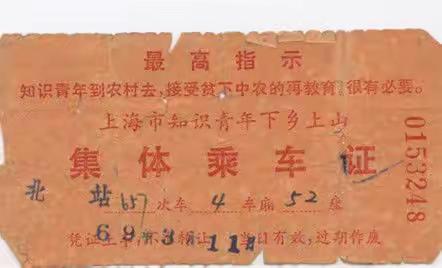 最高指示
知识青年到农村去,接受贫下中农的再教育,很有必要。
上海市知识青年下乡上山
集体乘车证
0153248
北站 657次车 4车厢 52座
69年3月11日
凭证上车,不得转让,当日有效,过期作废